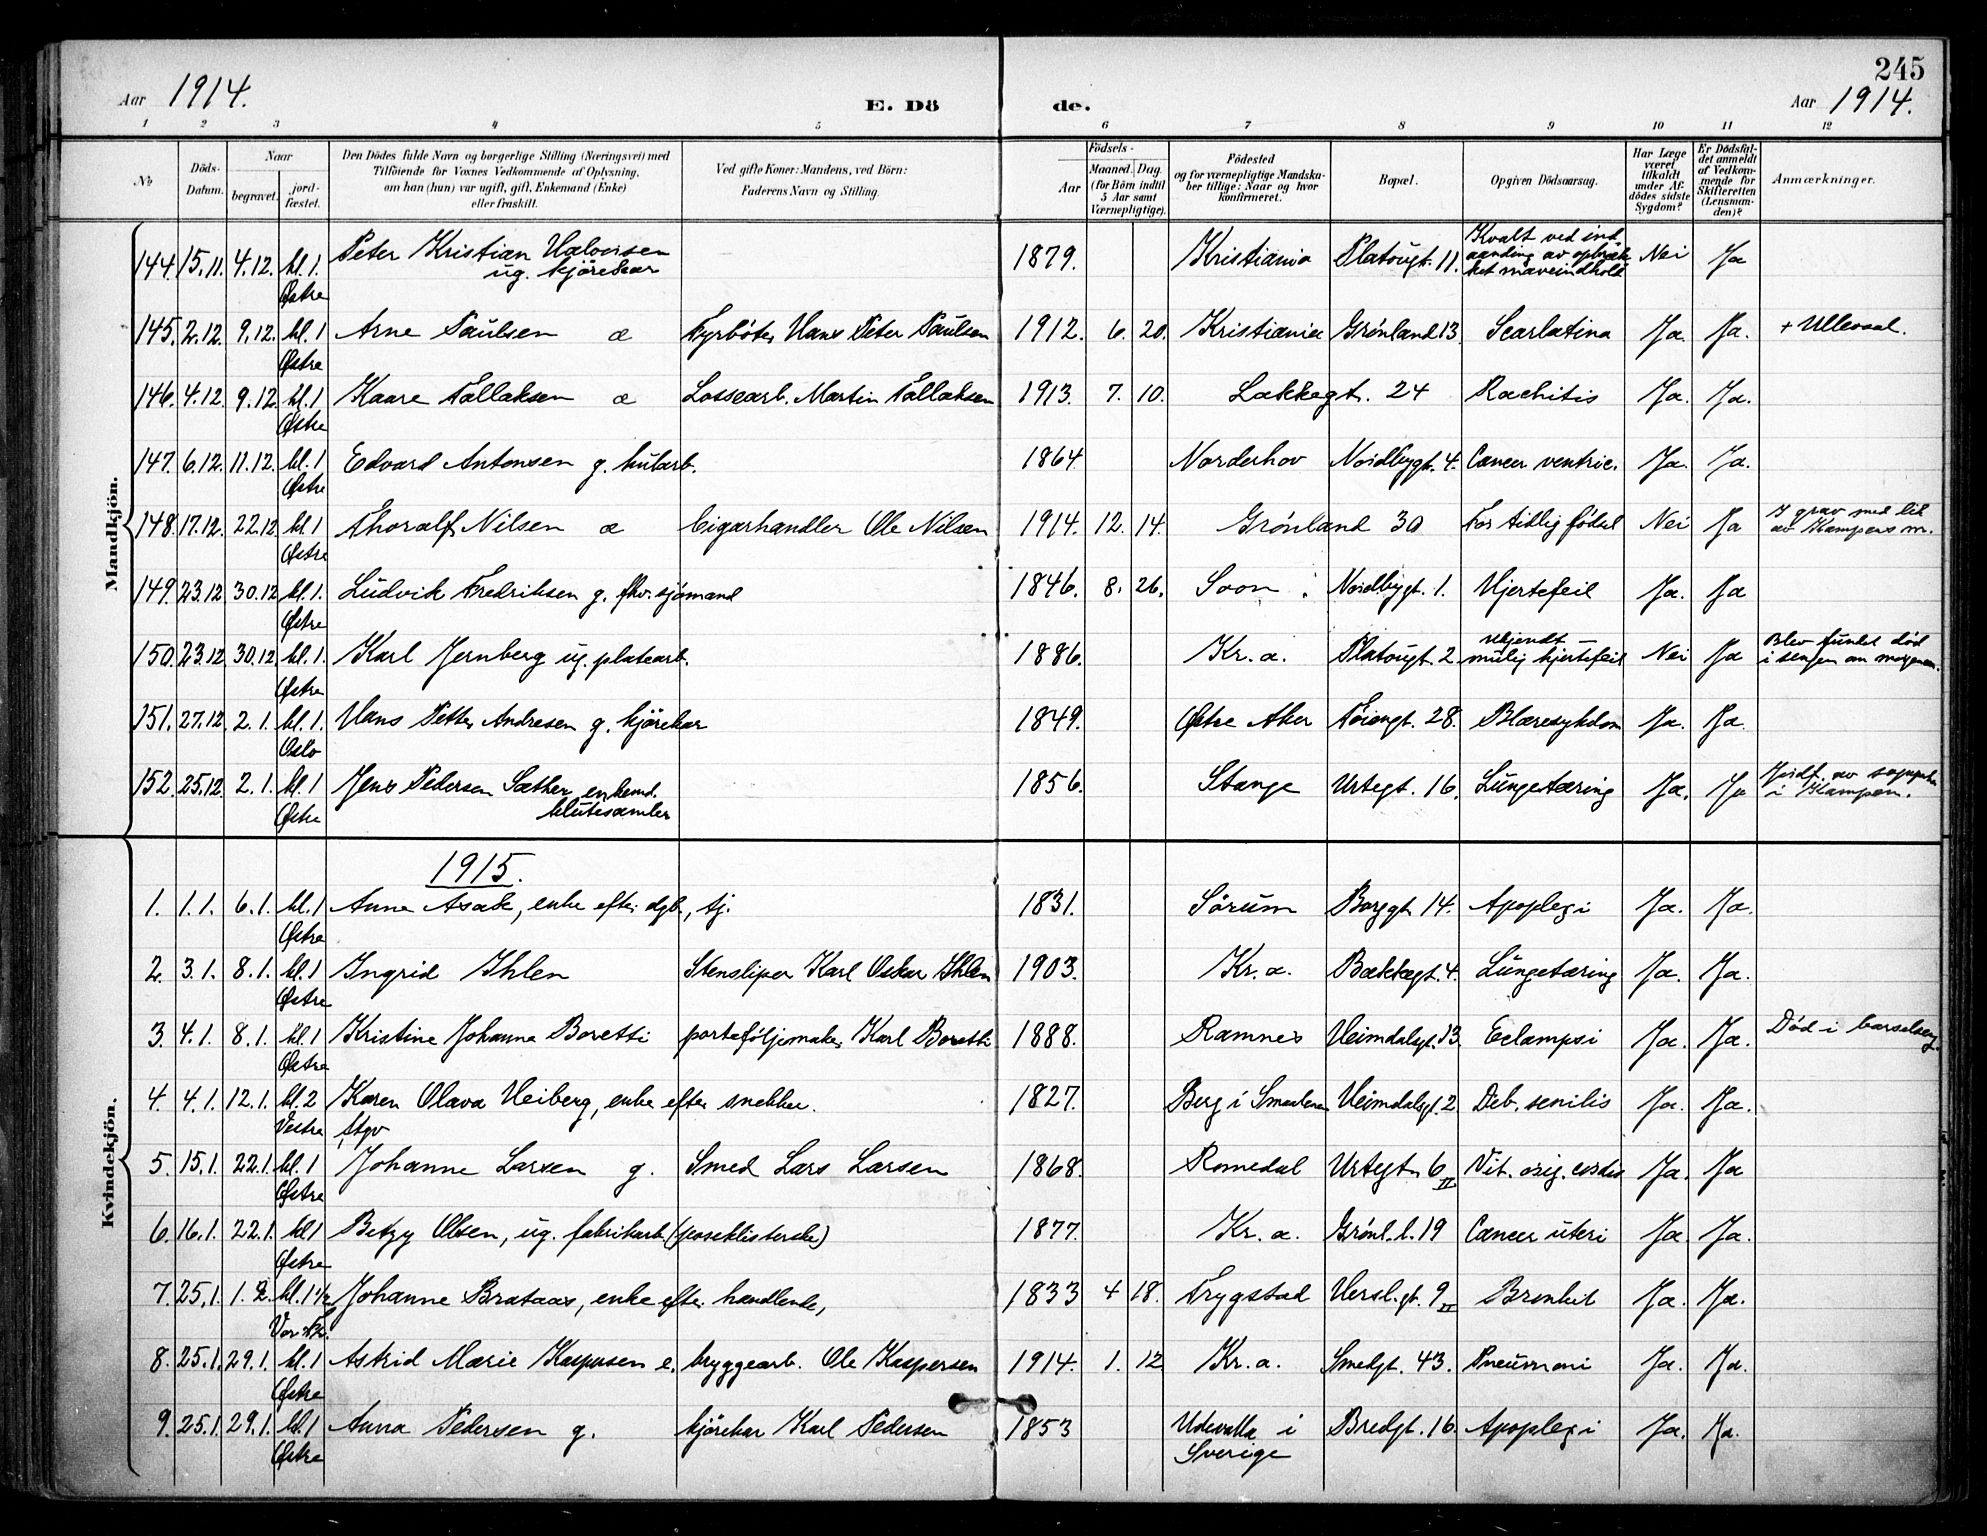 245
Aar 1914.
E. Dö de.
Aar 1914.
1 2 3 4 5 6 7 8 9 10 11 12
No
Döds-Datum.
Naar
begravet.
jord-fæstet.
Den Dödes fulde Navn og borgerlige Stilling (Næringsvei) med
Tilföiende for Voxnes Vedkommende af Oplysning,
om han (hun) var ugift, gift, Enkemand (Enke)
eller fraskilt.
Ved gifte Koner: Mandens, ved Börn:
Faderens Navn og Stilling.
Födsels-
Aar
Maaned. Dag.
(for Börn indtil
5 Aar samt
Værnepligtige).
Födested
og for værnepligtige Mandska-
ber tillige: Naar og hvor
konfirmeret.
Bopæl.
Opgiven Dödsaarsag.
Har Læge
været
tilkaldt
under Af-
dödes sidste
Sygdom?
Er Dödsfal-
det anmeldt
af Vedkom-
mende for
Skifteretten
(Lensman-
den)?
Anmærkninger.
Mandkjön.
144. 15.11. 4.12. kl. 1. Østre Peter Kristian Halvorsen ug. kjørekar 1879. Kristiania Platougt. 11. Kvalt ved ind-aanding av opbrækket maveindhold Nei Ja
145. 2.12. 9.12. kl. 1 Østre Arne Paulsen æ Fyrbøter Hans Peter Paulsen 1912. 6. 20. Kristiania Grønland 13. Scarlatina Ja. Ja. + Ullevaal.
146. 4.12 9.12. kl. 1 Østre Kaare Tallaksen æ Lossearb. Martin Tallaksen 1913. 7. 10. Lakkegt. 24 Rachitis Ja. Ja.
147. 6.12. 11.12. kl. 1 Østre Edvard Antonsen g. 1864 Norderhov Nordbygt. 4. Cancer ventric. Ja. Ja.
148. 17.12. 22.12 kl. 1 Østre Thoralf Nilsen æ Cigarhandler Ole Nilsen 1914. 12. 14. Grønland 30 For tidlig født Nei Ja I grav med lik av Kampens m.
149. 23.12 30.12 kl. 1. Østre Ludvik Fredriksen g. fhv. sjømand 1846. 8. 26. Soon Nordbygt. 1. Hjertefeil Ja. Ja
150. 23.12 30.12. kl. 1. Østre Karl Jernberg ug. platearb. 1886. Kr. a. Platougt. 2. ukjendt mulig hjertefeil Nei Ja Blev fundet død i sengen om morgenen.
151. 27.12. 2. 1. kl. 1. Oslo Hans Petter Andresen g. kjørekar 1849. Østre Aker Tøiengt. 28. Blæresykdom Ja. Ja.
152. 25.12. 2. 1. kl. 1 Østre Jens Pedersen Sæther enkemd. klutesamler 1856. Stange Urtegt. 16. Lungetæring Ja. Ja Jordf. av i Kampen.
1915.
Kvindekjön.
1. 1.1. 6.1. kl. 1 Østre Anna Asak, enke efter dgb., tj. 1831. Sørum Borggt. 14. Apoplexi Ja. Ja.
2. 3.1. 8.1. kl. 1 Østre Ingrid Ihlen Stensliper Karl Oskar Ihlen 1903. Kr. a. Bakkegt. 4. Lungetæring Ja. Ja.
3. 4.1. 8.1. kl. 1 Østre Kristine Johanna Boretti porteføljemaker Karl Boretti 1888. Ramnes Heimdalsgt. 13. Eclampsi Ja. Ja. Død i barselseng.
4. 4.1. 12.1. kl. 2 Vestre Karen Olava Heiberg, enke efter snekker. 1827. Berg i Smaalenen Heimdalsgt. 2 Deb. senilis Ja. Ja.
5. 15.1. 22.1. kl. 1 Østre Johanne Larsen g. Smed Lars Larsen 1868. Romedal Urtegt. 6 II Vit. org. cordis Ja. Ja
6. 16.1. 22.1. kl. 1 Østre Betzy Olsen, ug. fabrikarb. (poseklisterske) 1877. Kr. a. Grønl. l. 19 Cancer uteri Ja. Ja.
7. 25.1. 1. 2. kl. 1 1/2 Vor Fr. Johanne Brataas, enke efter handlende, 1833 4 18. Trygstad Hersl. gt. 9 II Bronkit Ja. Ja.
8. 25.1. 29.1. kl. 1 Østre Astrid Marie Kaspersen e. bryggearb. Ole Kaspersen 1914. 1. 12 Kr. a. Smedgt. 43. Pneumoni Ja. Ja.
9. 25.1. 29.1. kl. 1 Østre Anna Pedersen g. kjørekar Karl Pedersen 1853 Udevalla i Sverige Bredgt. 16. Apoplexi Ja. Ja.